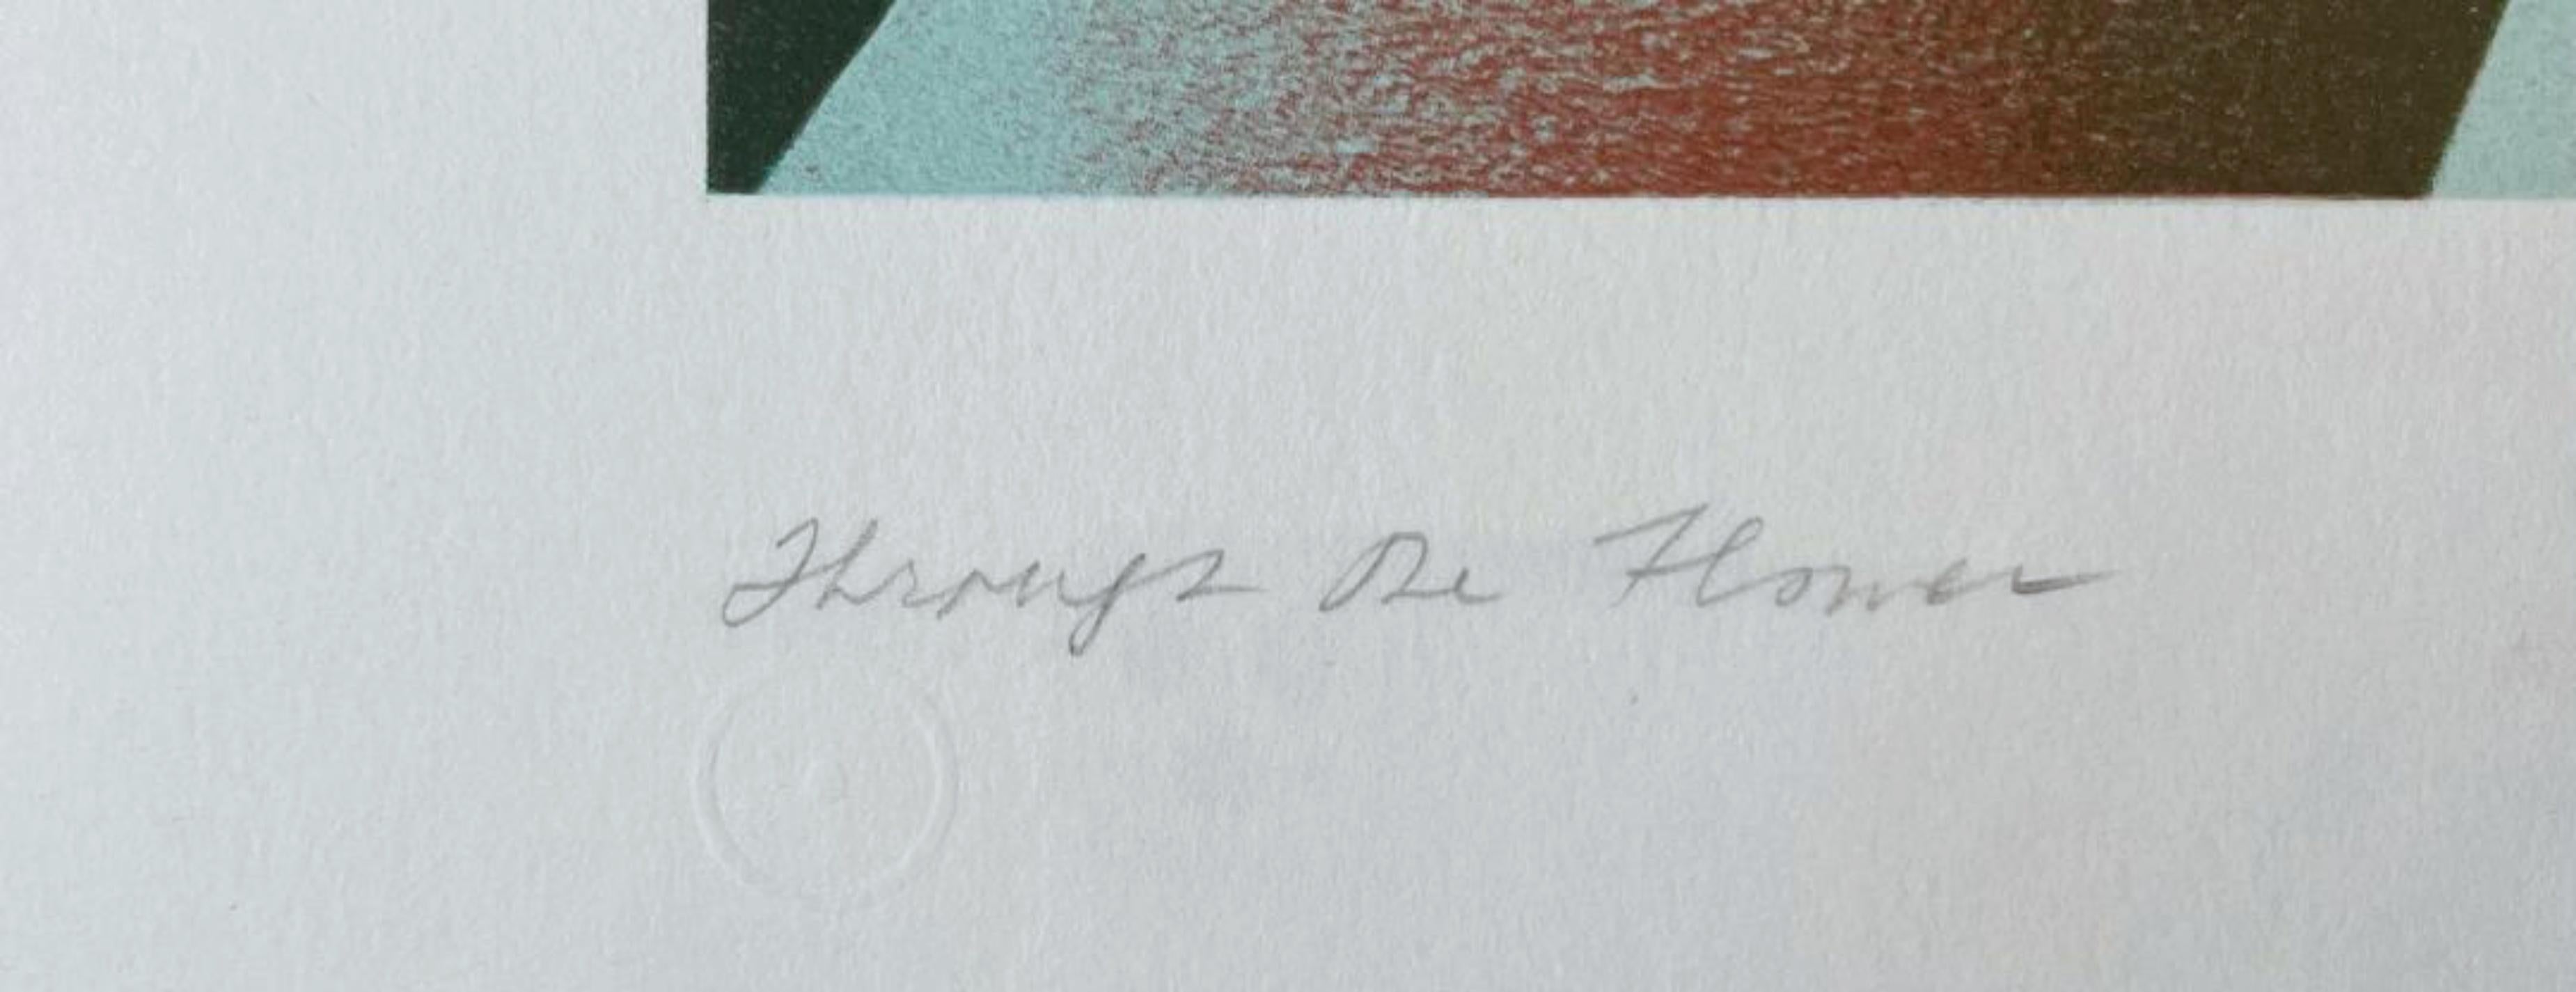 Through the Flower